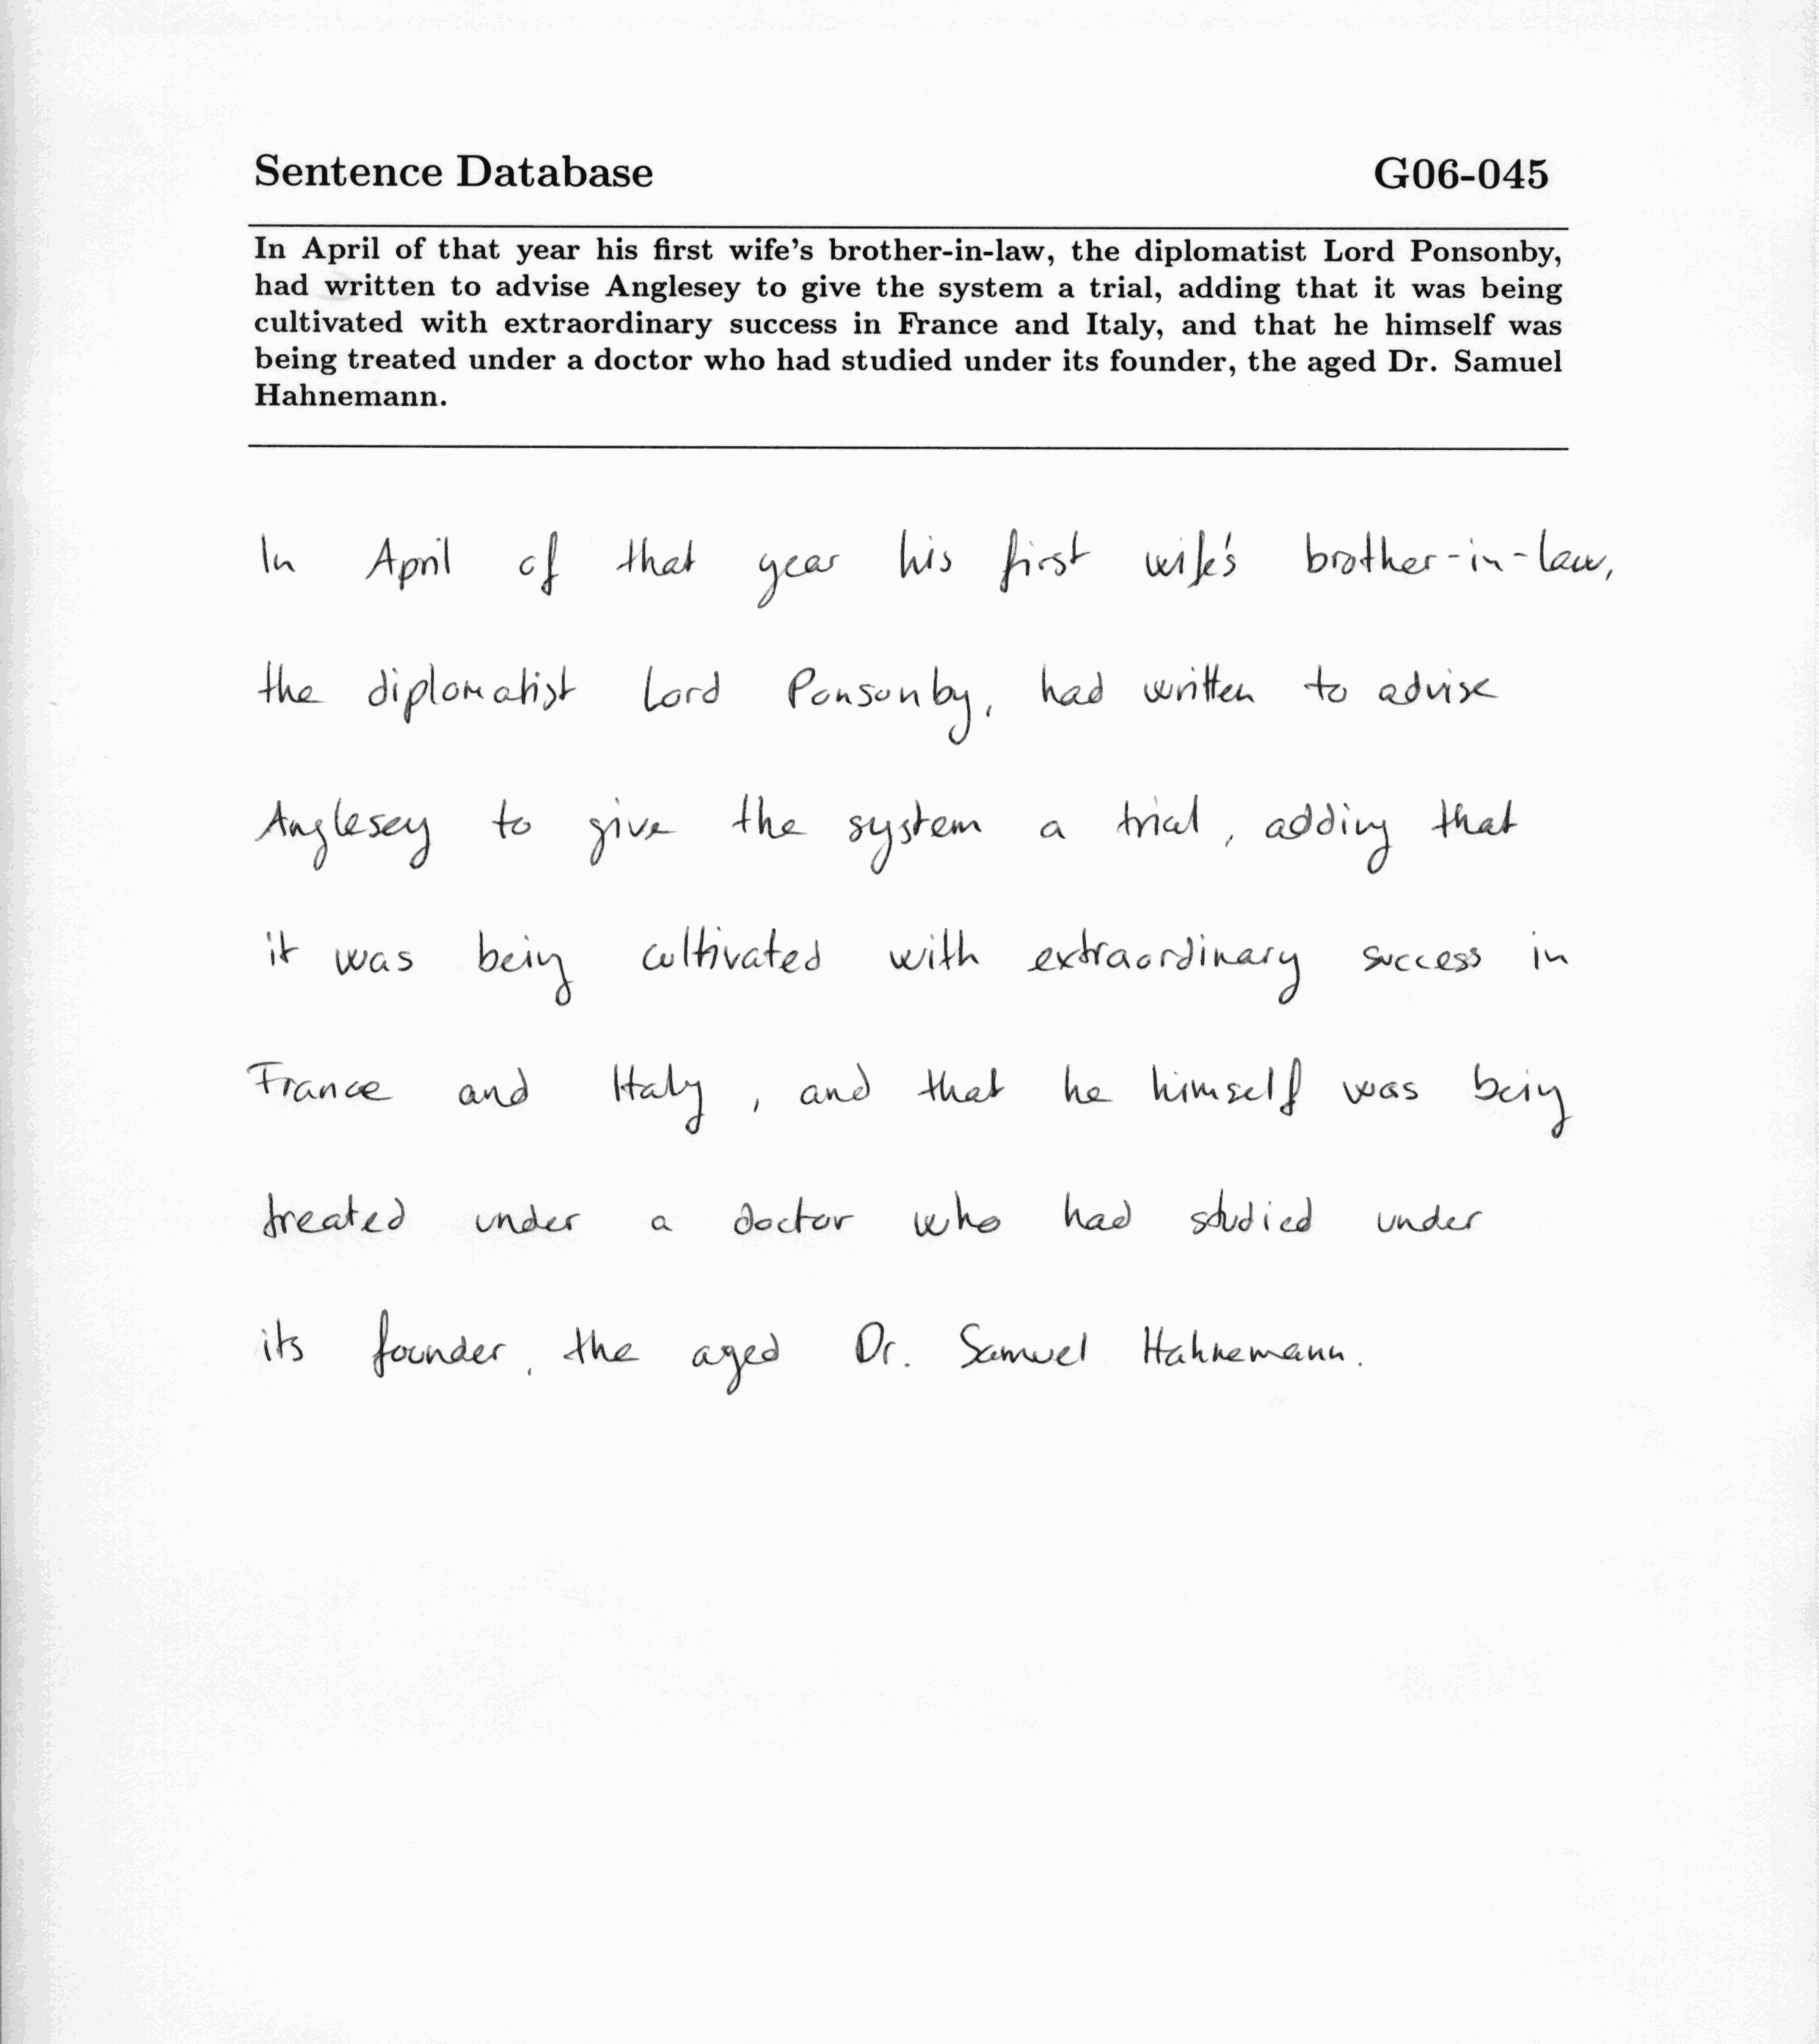 Sentence Database G06-045
In April of that year his first wife's brother-in-law, the diplomatist Lord Ponsonby,
had written to advise Anglesey to give the system a trial, adding that it was being
cultivated with extraordinary success in France and Italy, and that he himself was
being treated under a doctor who had studied under its founder, the aged Dr. Samuel
Hahnemann.
In April of that year his first wife's brother-in-law,
the diplomatist Lord Ponsonby, had written to advise
Anglesey to give the system a trial, adding that
it was being cultivated with extraordinary success in
France and Italy, and that he himself was being
treated under a doctor who had studied under
its founder, the aged Dr. Samuel Hahnemann.